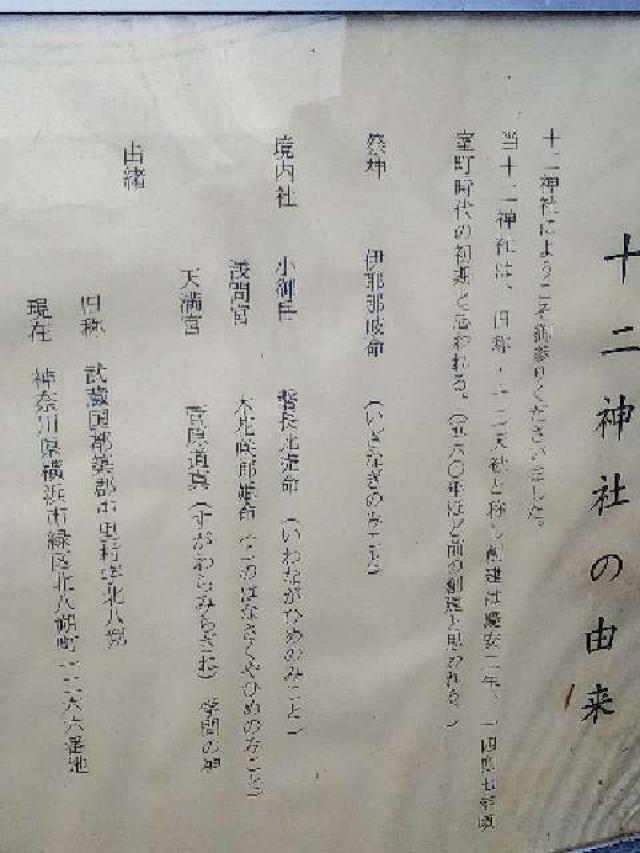 十二神社の由来
十二神社にようこそ御参りくださいました。
当十二神社は、旧称・十二天社と称し創建は慶安二年、一四四七年頃
室町時代の初期と思われる。（五六〇年ほど前の創建と思われる。）
祭神　伊耶那岐命　（いざなぎのみこと）
境内社　小御岳　磐長比売命　（いわながひめのみこと）
浅間宮　木花咲耶姫命（このはなさくやひめのみこと）
天満宮　菅原道真（すがわらみちざね）　学問の神
由緒
旧称　武蔵国都築郡中里村字北八朔
現在　神奈川県横浜市緑区北八朔町一二六六番地